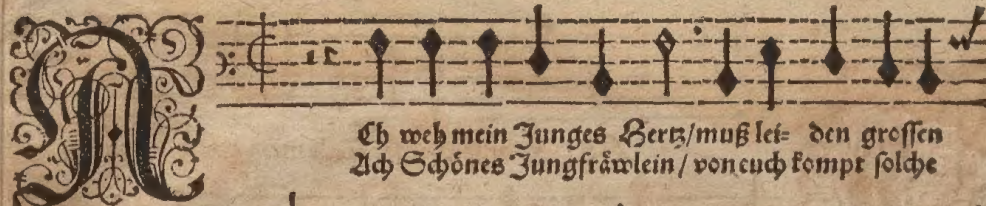 ACh weh mein Junges Hertz/muß lei= den grossen
Ach Schönes Jungfräwlein/ von euch kompt solche